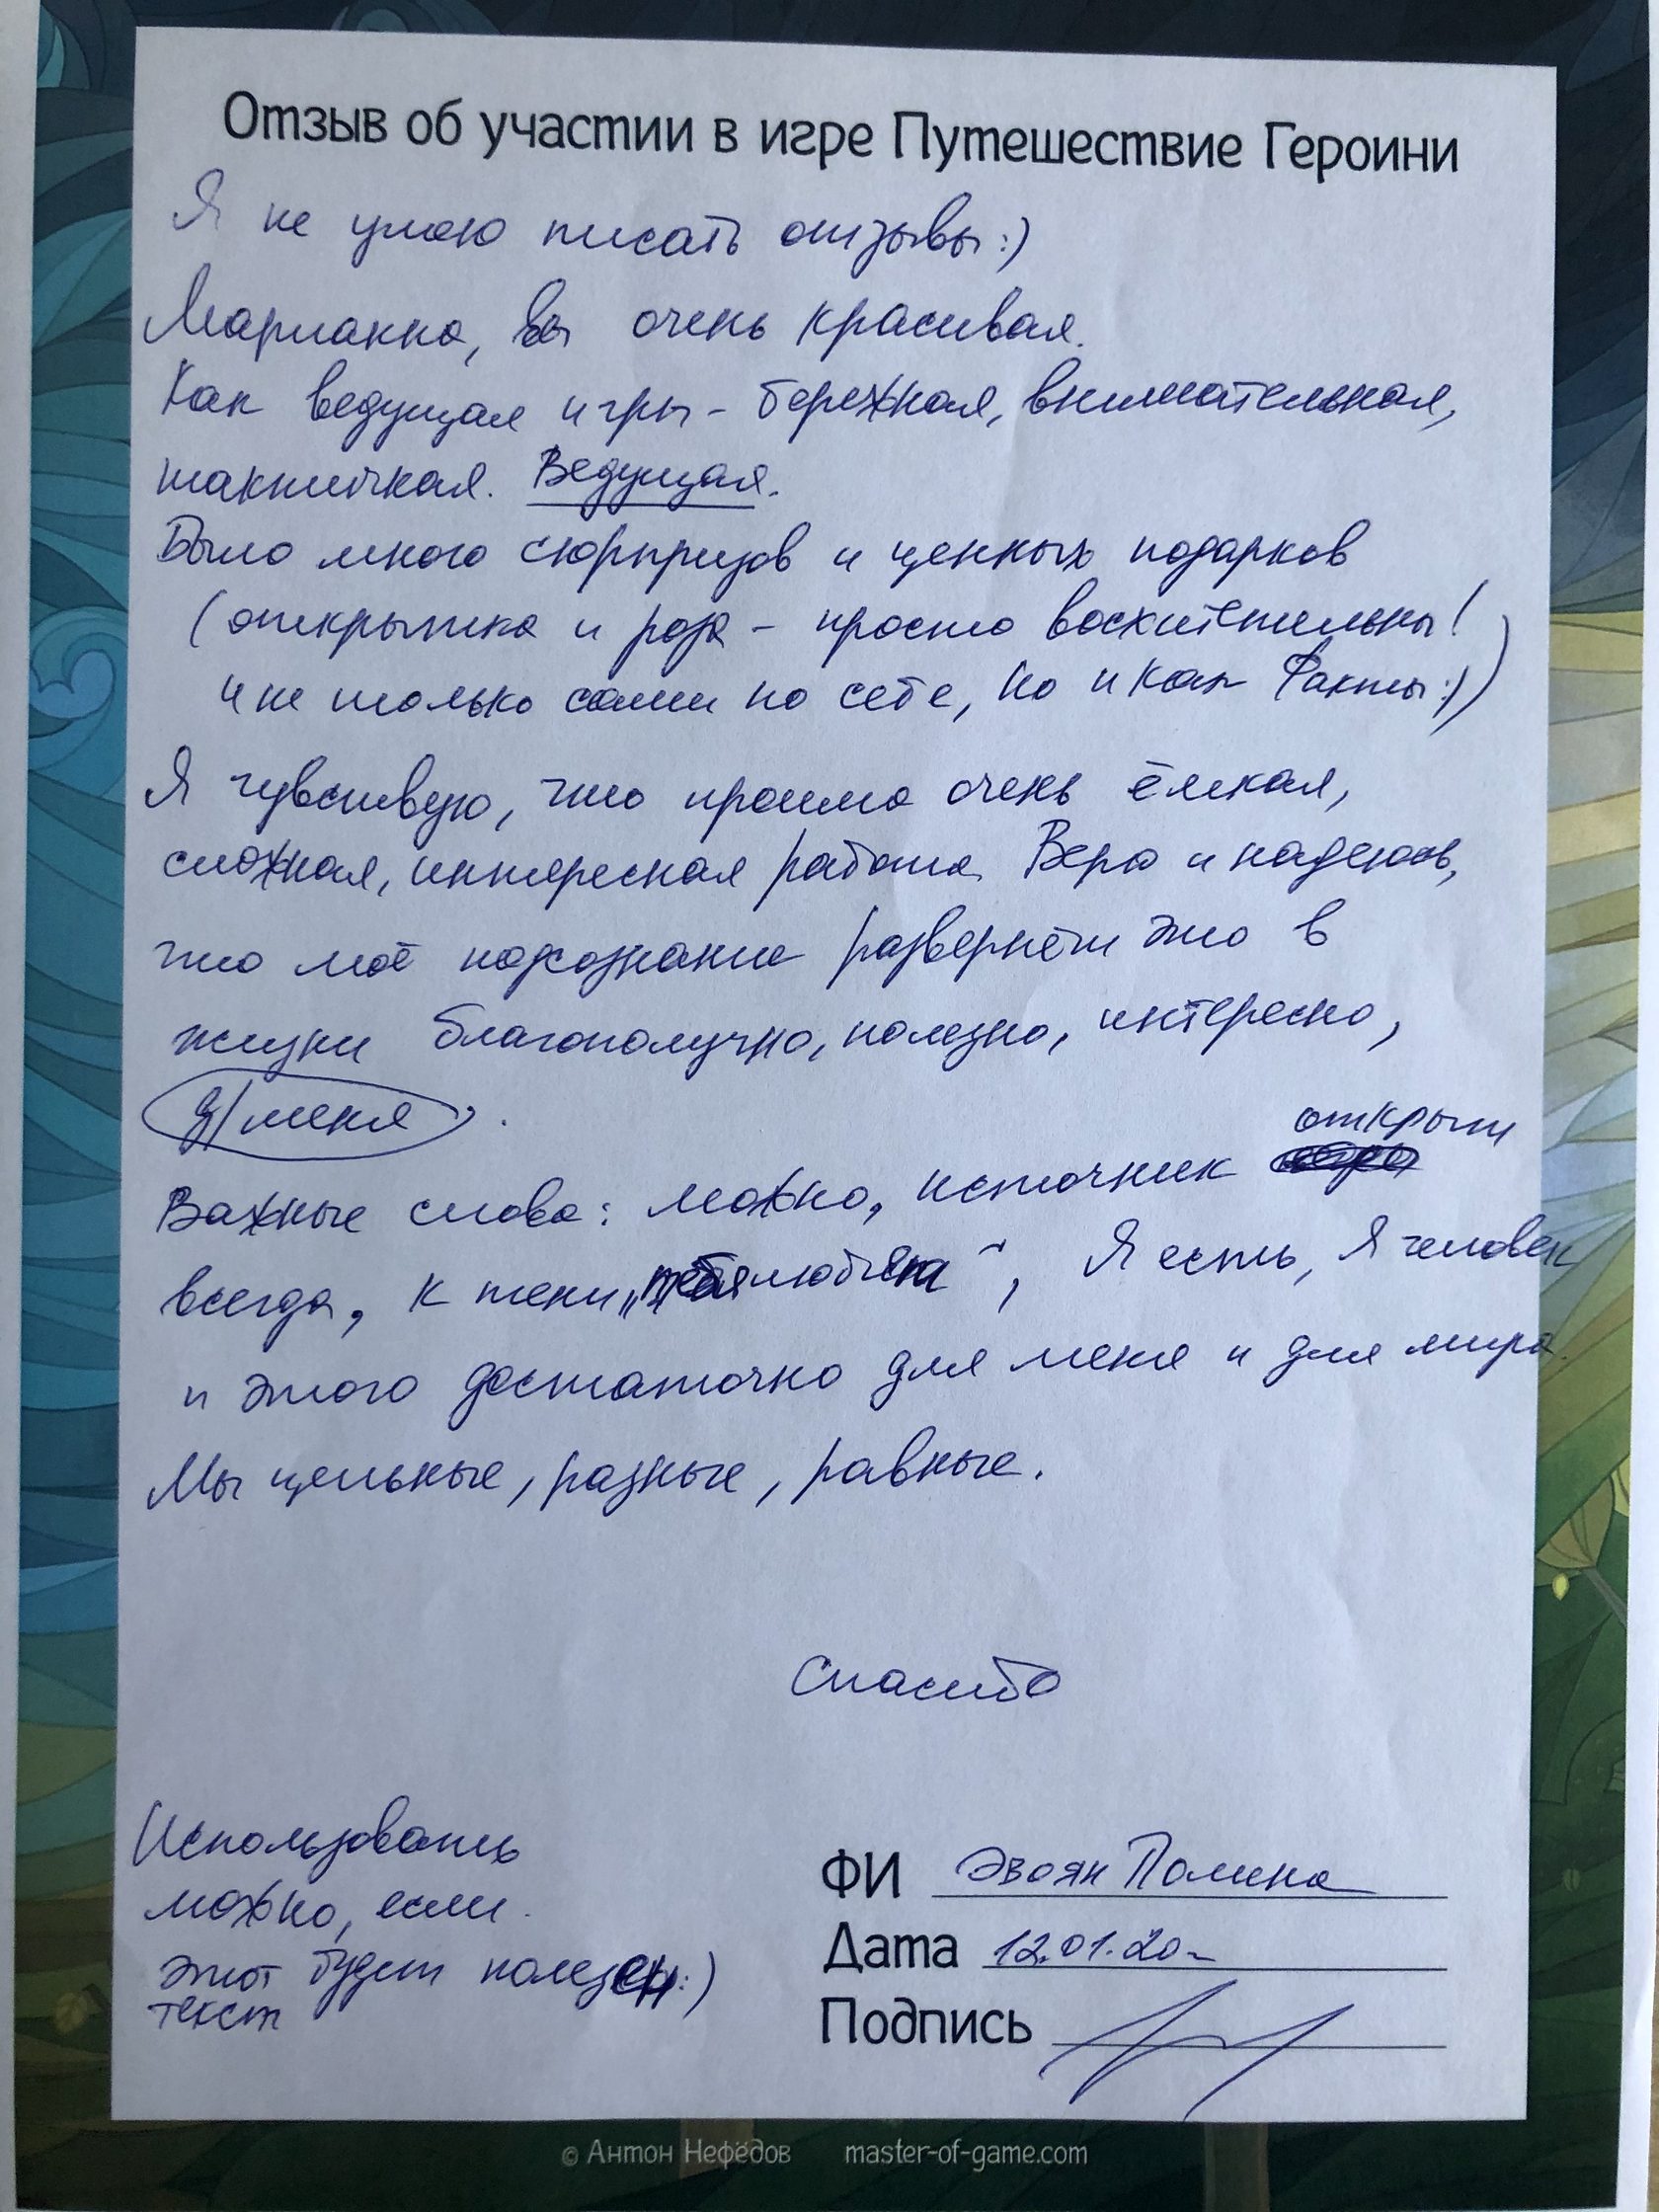 Отзыв об участии в игре Путешествие Героини
Я не умею писать отзывы :)
Марианна, вы очень красивая.
Как ведущая игры - бережная, внимательная,
тактичная. Ведущая.
Было много сюрпризов и ценных подарков
(открытка и роза - просто восхитительны!
и не только сами по себе, но и как факты :))
Я чувствую, что прошла очень ёмкая,
сложная, интересная работа. Верю и надеюсь,
что моё подсознание развернёт это в
жизни благополучно, полезно, интересно,
д/меня.
Важные слова: можно, источник открыт
всегда, к тени „ “, Я есть, Я человек
и этого достаточно для меня и для мира.
Мы цельные, разные, равные.
Спасибо
Использовать
можно, если
этот будет полезен :)
текст
ФИ Эвоян Полина
Дата 12.01.20
Подпись
© Антон Нефёдов master-of-game.com